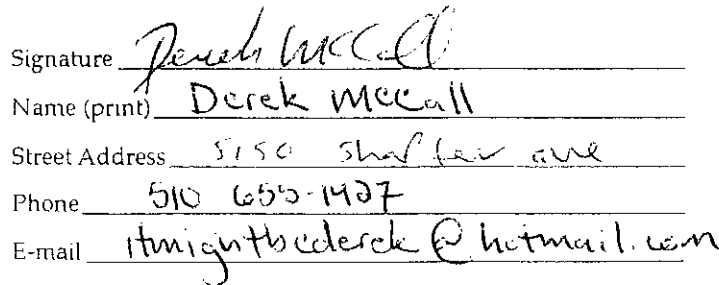 Signature Derek McCall
Name (print) Derek McCall
Street Address 5150 Shafter ave
Phone 510 655-1427
E-mail itmightbederek@hotmail.com